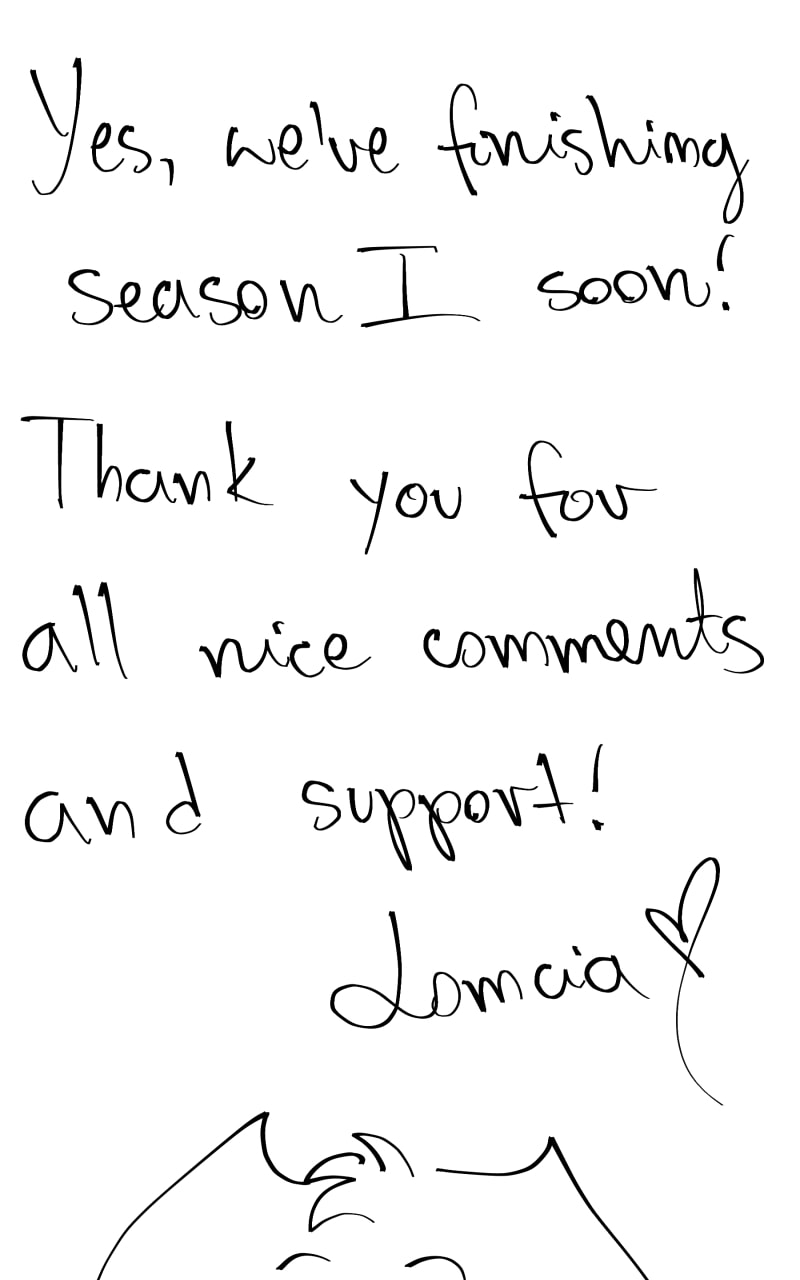 Yes, we've finishing
season I soon!
Thank you for
all nice comments
and support!
Lomcia